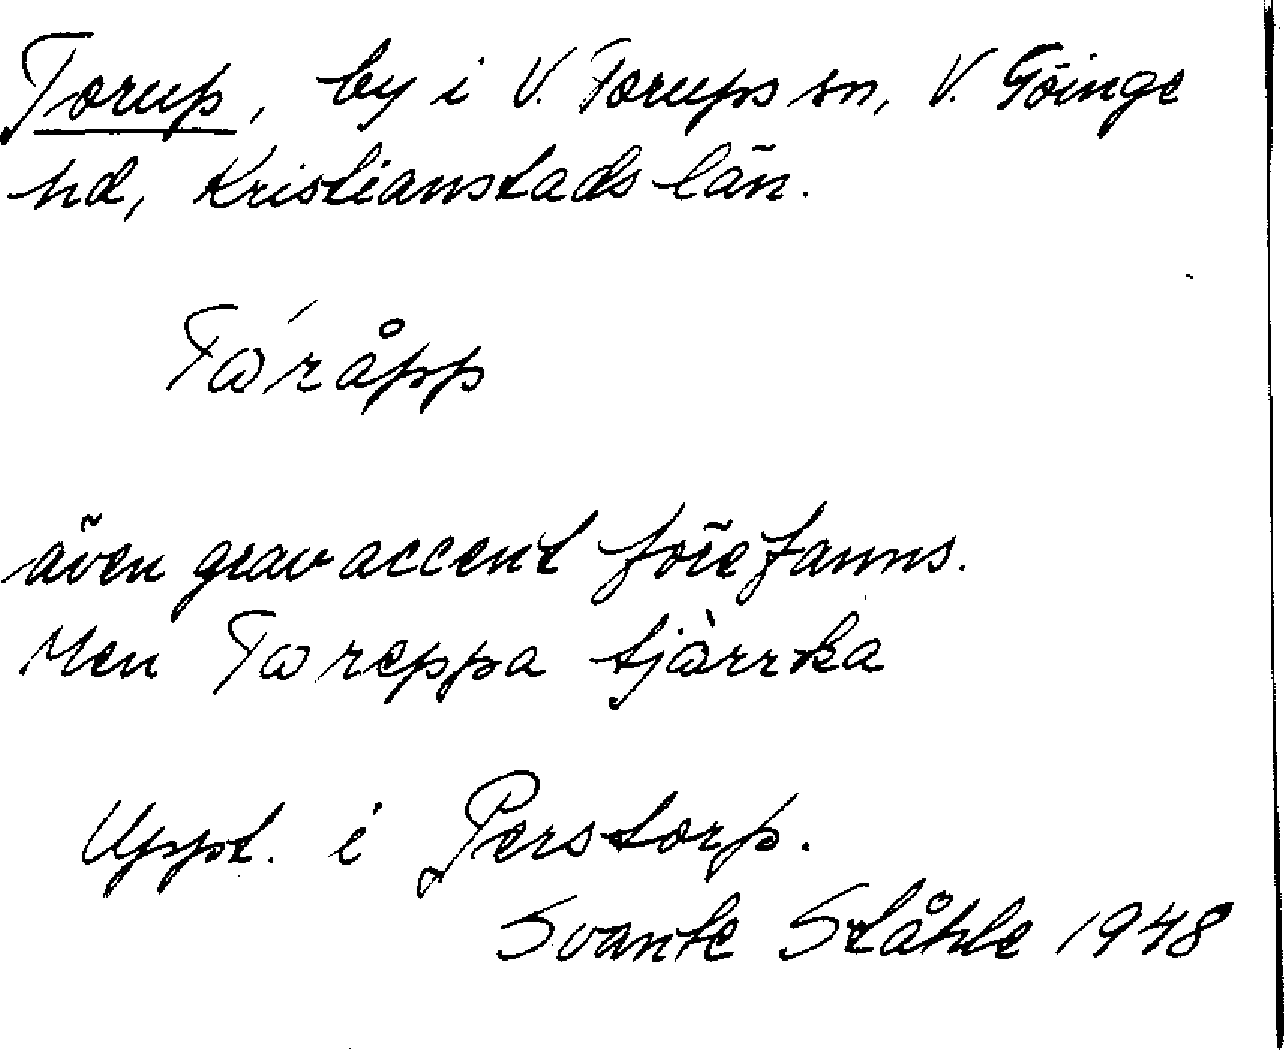 Torup, by i V. Torups sn, V. Göinge
hd, Kristianstads län.
Tω´råpp
även grav accent förefanns.
Men Tωreppa tjàrrka
Uppt. i Perstorp.
Svante Ståhle 1948